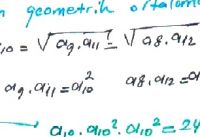 geometrik ortalama
a₁₀ = √a₉.a₁₁ = √a₈.a₁₂
a₉.a₁₁ = a₁₀² a₈.a₁₂ = a
a₁₀.a₁₀².a₁₀² = 24